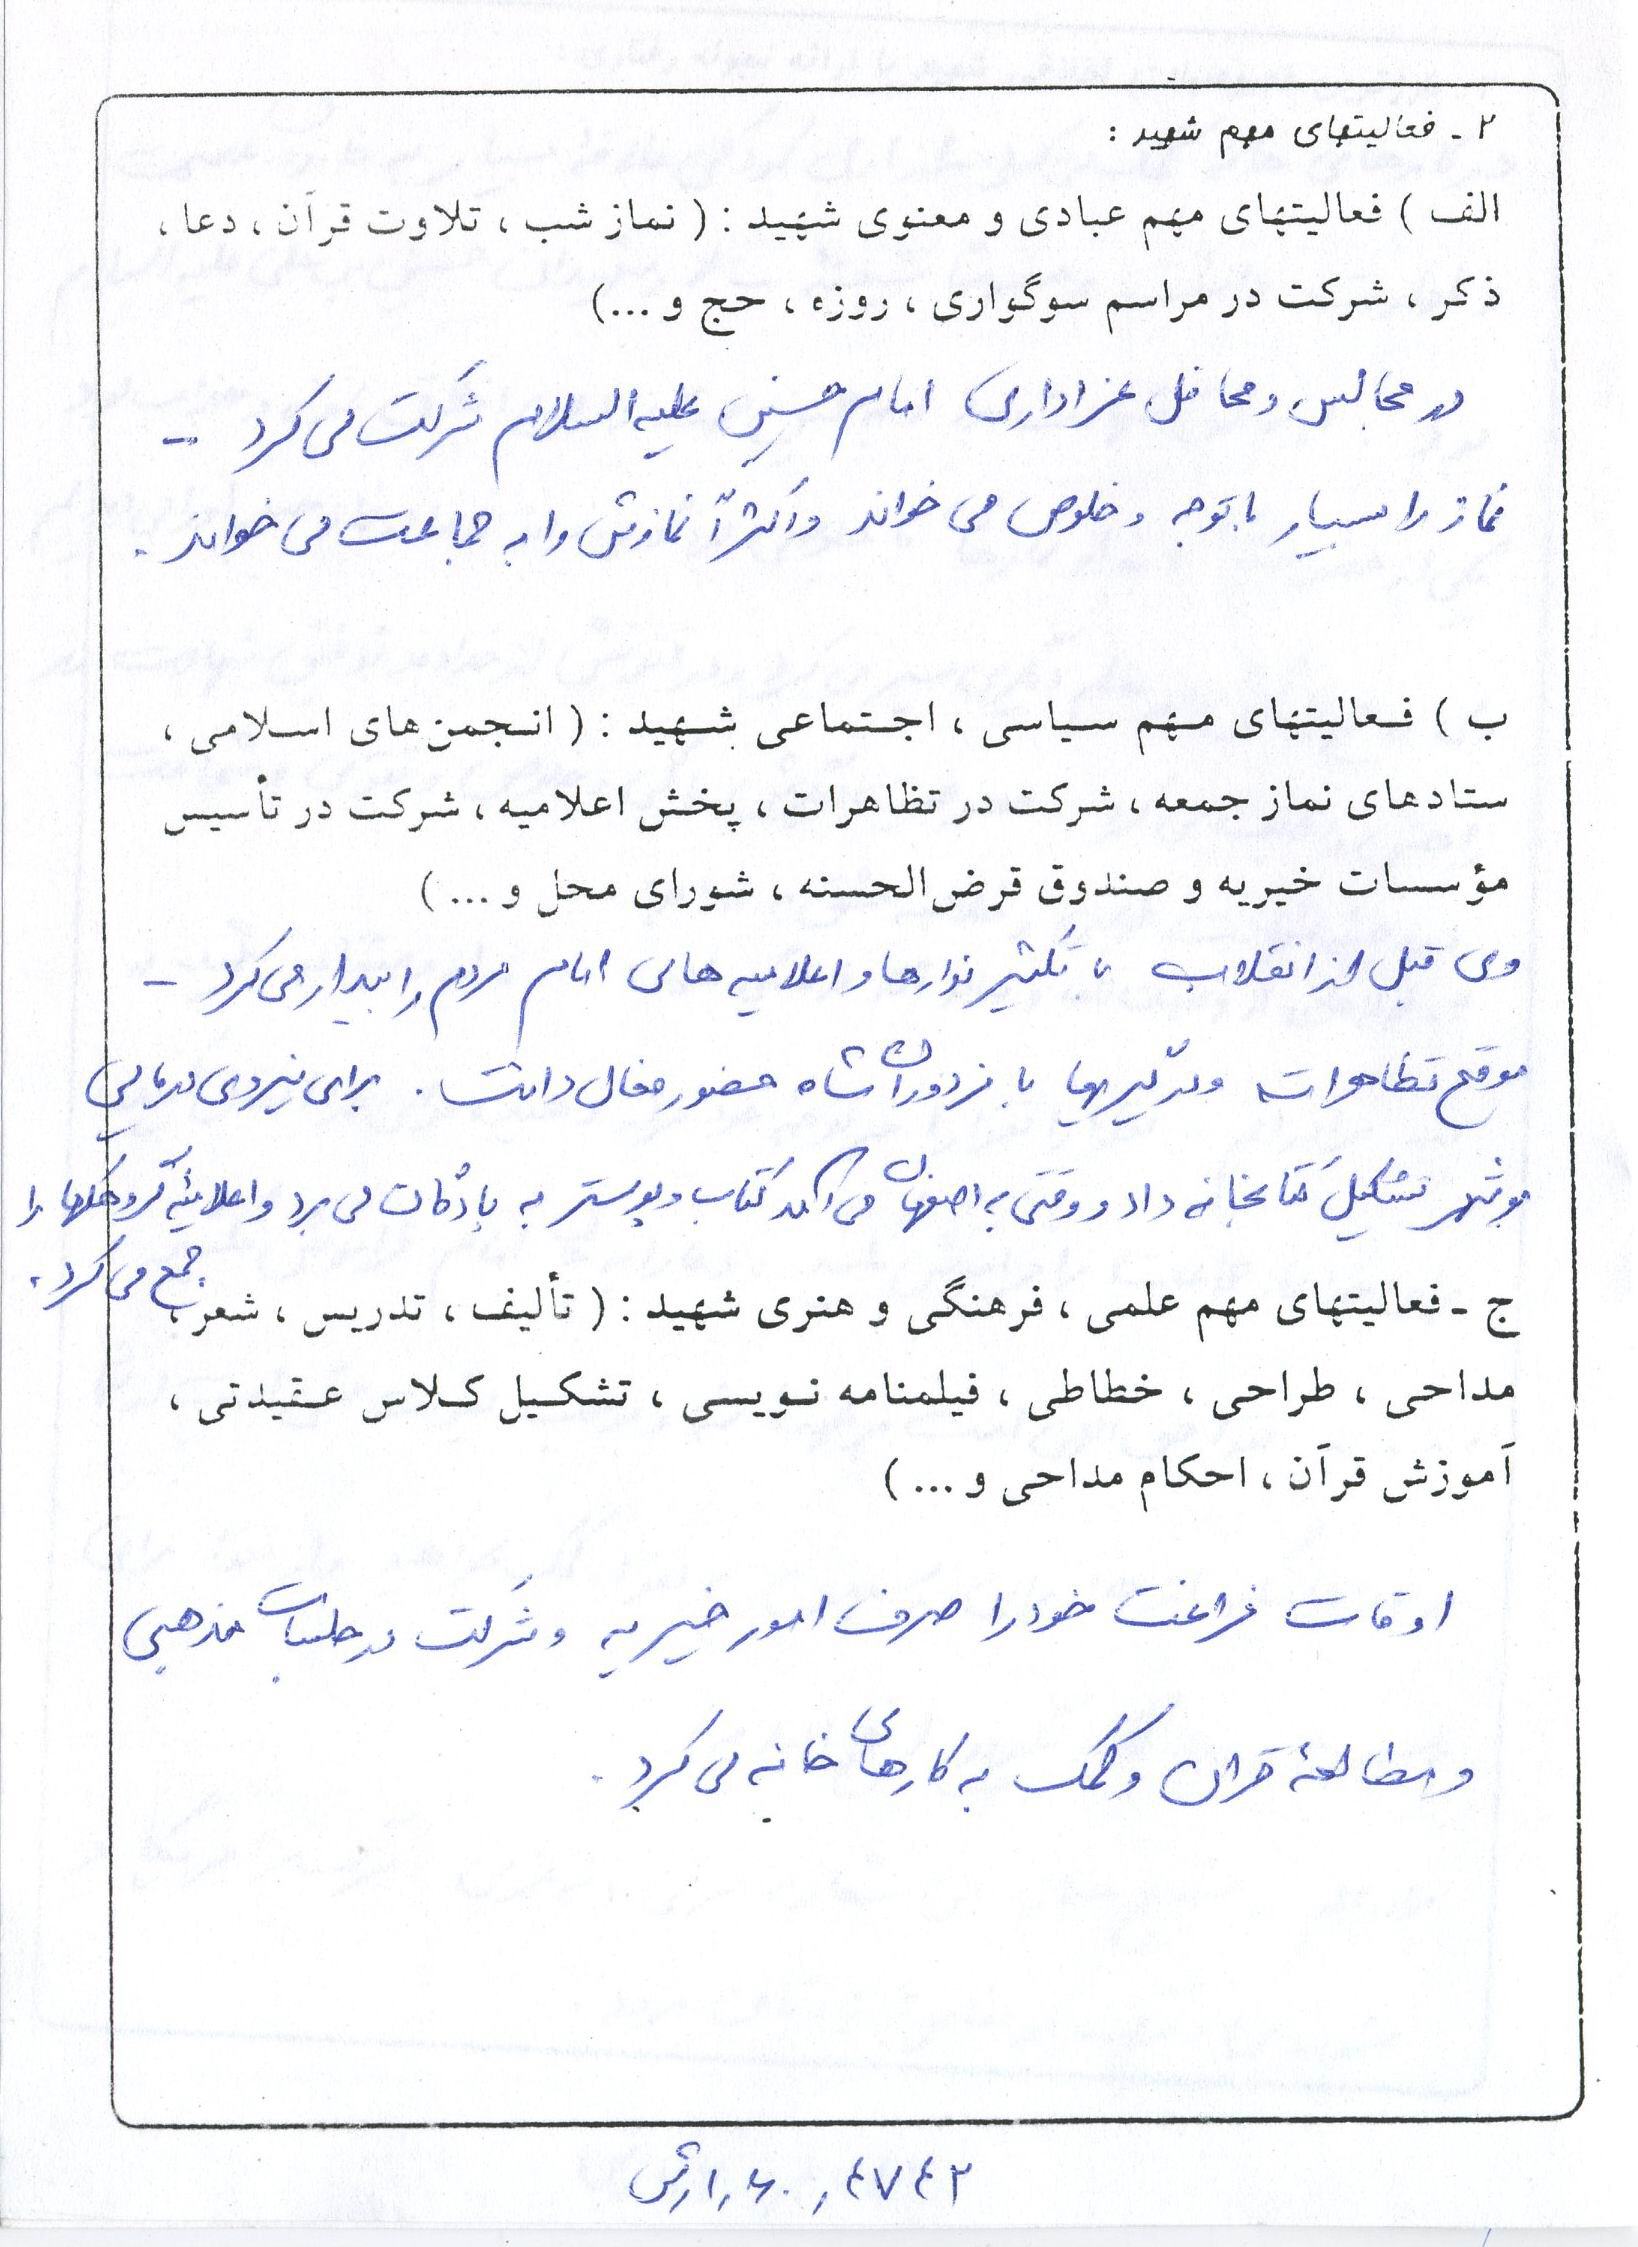 ۲ ـ فعالیتهای مهم شهید :
الف ) فعالیتهای مهم عبادی و معنوی شهید : ( نماز شب ، تلاوت قرآن ، دعا ،
ذکر ، شرکت در مراسم سوگواری ، روزه ، حج و ...)
در مجالس و محافل عزاداری امام حسین علیه السلام شرکت می کرد -
نماز را بسیار با توجه و خلوص می خواند و اکثراً نمازش را به جماعت می خواند .
ب ) فعالیتهای مهم سیاسی ، اجتماعی شهید : ( انجمن های اسلامی ،
ستادهای نماز جمعه ، شرکت در تظاهرات ، پخش اعلامیه ، شرکت در تأسیس
مؤسسات خیریه و صندوق قرض الحسنه ، شورای محل و ... )
وی قبل از انقلاب با تکثیر نوارها و اعلامیه های امام مردم را بیدار می کرد -
موقع تظاهرات و درگیریها با مزدوران شاه حضور فعال داشت . برای نیروی دریایی
بوشهر تشکیل کتابخانه داد و وقتی به اصفهان می آمد کتاب و پوستر به پادگان می برد و اعلامیۀ گروهکها را
جمع می کرد .
ج ـ فعالیتهای مهم علمی ، فرهنگی و هنری شهید : ( تألیف ، تدریس ، شعر ،
مداحی ، طراحی ، خطاطی ، فیلمنامه نویسی ، تشکیل کلاس عقیدتی ،
آموزش قرآن ، احکام مداحی و ... )
اوقات فراغت خود را صرف امور خیریه و شرکت در جلسات مذهبی
و مطالعۀ قرآن و کمک به کارهای خانه می کرد .